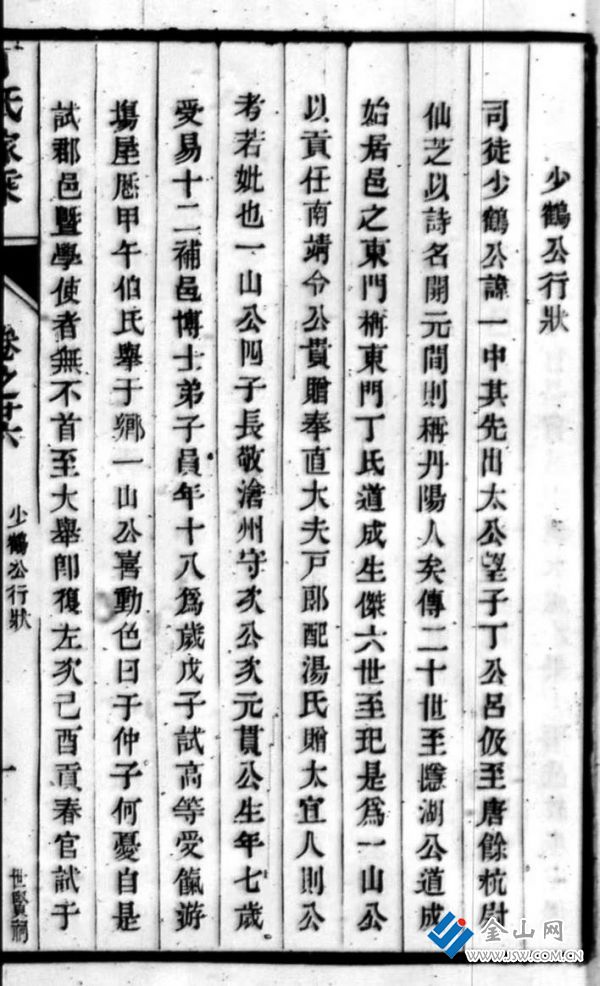 少鶴公行狀
司徒少鶴公諱一中其先出太公望子丁公呂伋至唐餘杭尉
仙芝以詩名開元間則稱丹陽人矣傳二十世至隱湖公道成
始居邑之東門稱東門丁氏道成生傑六世至玘是爲一山公
以貢任南靖令公貴贈奉直大夫戸郎配湯氏贈太宜人則公
考若妣也一山公四子長敬滄州守次公次元貫公生年七歲
受易十二補邑博士弟子員年十八爲歲戊子試高等受餼游
塲屋歷甲午伯氏舉于鄉一山公喜動色曰于仲子何憂自是
試郡邑暨學使者無不首至大舉卽復左次己酉貢春官試于
氏家乘
卷之廿六
少鶴公行狀
一
世賢祠
金山网
WWW.JSW.COM.CN